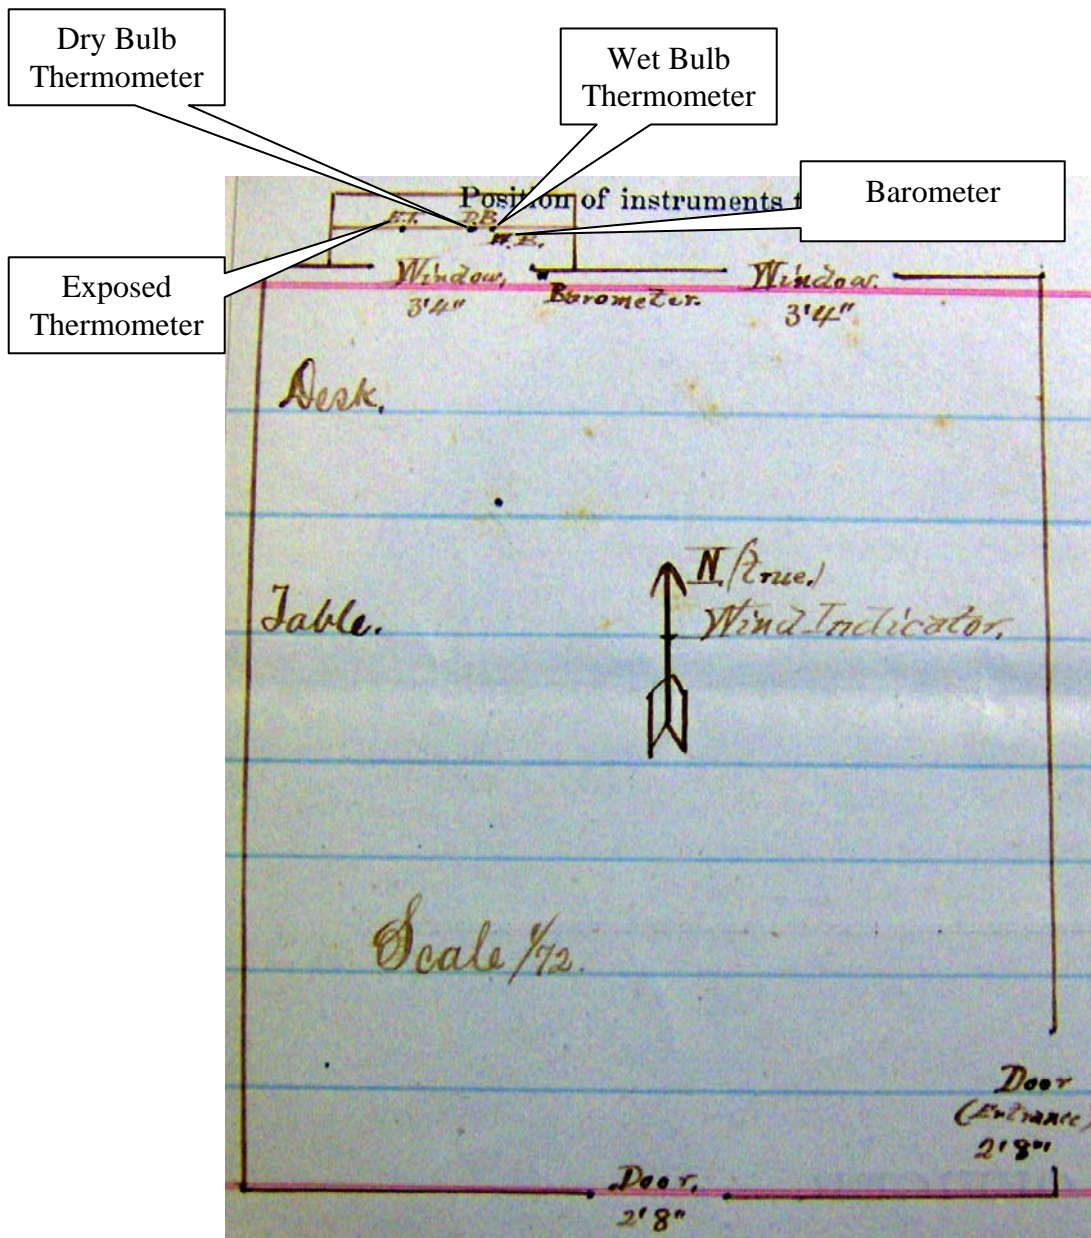 Dry Bulb
Thermometer
Wet Bulb
Thermometer
Barometer
Exposed
Thermometer
Position of instruments
E.T. D.B.
W.B.
Window,
3'4"
Barometer.
Window.
3'4"
Desk.
N. (true.)
Wind Indicator.
Table.
Scale 1/72.
Door
(Entrance)
2'8"
Door.
2'8"